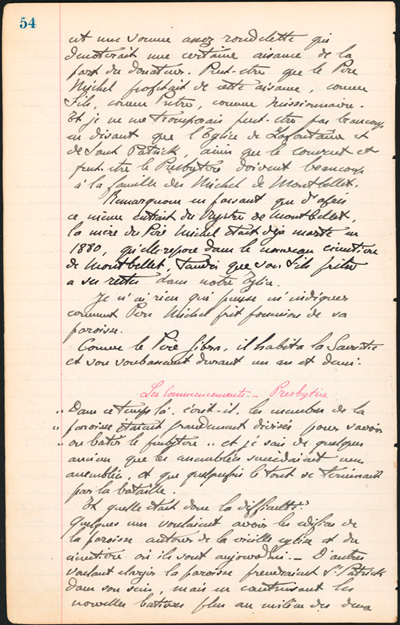 54
est une somme assez rondelette qui
denoterait une certaine aisance de la
part du donateur. Peut-etre que le Père
Michel profitait de cette aisance, comme
fils, comme frère, comme missionnaire.
Et je ne me tromperais peut-etre pas beaucoup
en disant que l'Eglise de Lafontaine et
de Saint Patrick, ainsi que le couvent et
peut-etre le Presbytère doivent beaucoup
à la famille des Michel de Montbellet.
Remarquons en passant que d'après
ce même extrait du Registre de Montbellet,
la mère du Père Michel était déjà morte en
1880, qu'elle repose dans le nouveau cimetière
de Montbellet, tandis que son fils prêtre
a ses restes dans notre Eglise.
Je n'ai rien qui puisse m'indiquer
comment Père Michel prit possession de sa
paroisse.
Comme le Père Gibra, il habita la Sacristie
et son soubassement durant un an et demi.
Les commencements. — Presbytère
"Dans ce temps là, écrit-il, les membres de la
"paroisse étaient grandement divisés pour savoir
"où bâtir le presbytère" et je sais de quelques
anciens que les assemblées succédaient aux
assemblées, et que quelquefois le tout se terminait
par la bataille.
Et quelle était donc la difficulté?
Quelques uns voulaient avoir les édifices de
la paroisse autour de la vieille église et du
cimetière où ils sont aujourd'hui. — D'autres
voulant élargir la paroisse prendraient St. Patrick
dans son sein, mais en construisant les
nouvelles batisses plus au milieu des deux